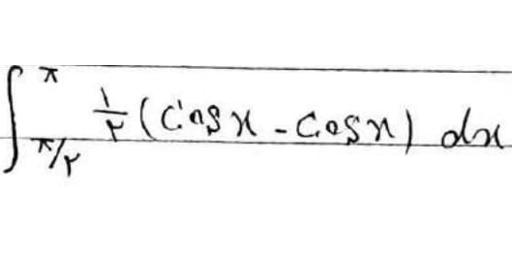 ∫_{π/۲}^{π} ۱/۲ (Cosx - Cosx) dx